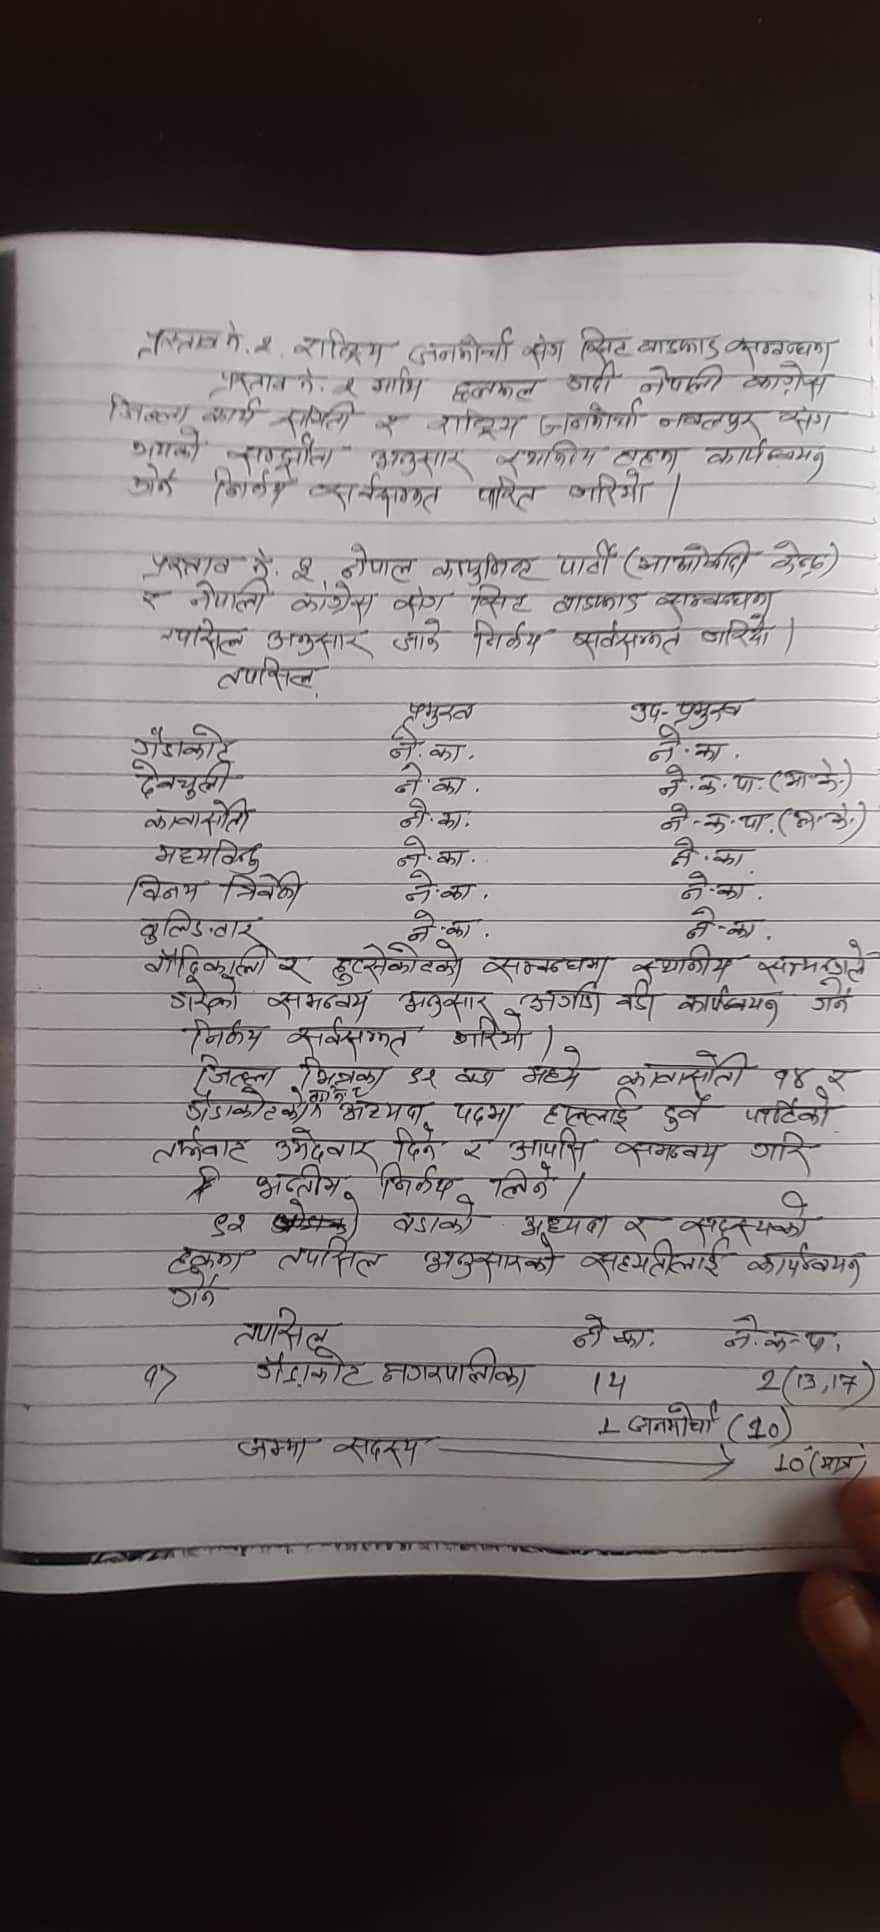 प्रस्ताव नं. २. राष्ट्रिय जनमोर्चा संग सिट बाडफाड सम्बन्धमा
प्रस्ताव नं. २ माथि छलफल गर्दा नेपाली काग्रेस
जिल्ला कार्य समिती र राष्ट्रिय जनमोर्चा नवलपुर संग
भएको सम्झौता अनुसार स्थानिय तहमा कार्यन्वयन
गर्ने निर्णय सर्वसम्मत पारित गरियो ।
प्रस्ताव नं. ३ नेपाल कम्युनिष्ट पार्टी (माओवादी केन्द्र)
र नेपाली कांग्रेस संग सिट बाडफाड सम्बन्धमा
तपसिल अनुसार जाने निर्णय सर्वसम्मत गरियो ।
तपसिल
प्रमुख उप-प्रमुख
गैंडाकोट ने.का. ने.का.
देवचुली ने.का. ने.क.पा.(मा.के.)
कावासोती ने.का. ने.क.पा.(मा.के.)
मध्यविन्दु ने.का. ने.का.
विनय त्रिवेणी ने.का. ने.का.
बुलिङटार ने.का. ने.का.
बौदिकाली र हुप्सेकोटको सम्बन्धमा स्थानीय
गरेको समन्वय अनुसार अगाडि बढी कार्यन्वयन गर्ने
निर्णय सर्वसम्मत गरियो ।
जिल्ला भित्रका ९२ वडा मध्ये कावासोती १४ र
गैंडाकोटको अध्यक्ष पदमा हाललाई दुवै पार्टिको
तर्फबाट उमेदवार दिने र आपसि समन्वय गरि
अन्तीम निर्णय लिने ।
९२ वडाको अध्यक्ष र सदस्यको
हकमा तपसिल अनुसारको सहमतीलाई कार्यन्वयन
गर्ने
तपसिल ने.का. ने.क.पा.
१> गैंडाकोट नगरपालिका 14 2(13,17)
1 जनमोर्चा (10)
जम्मा सदस्य → 10 (मात्र)